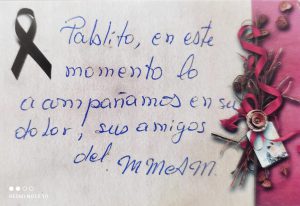 Pablito, en este
momento lo
acompañamos en su
dolor, sus amigos
del. MMeAM.
REDMI NOTE 10